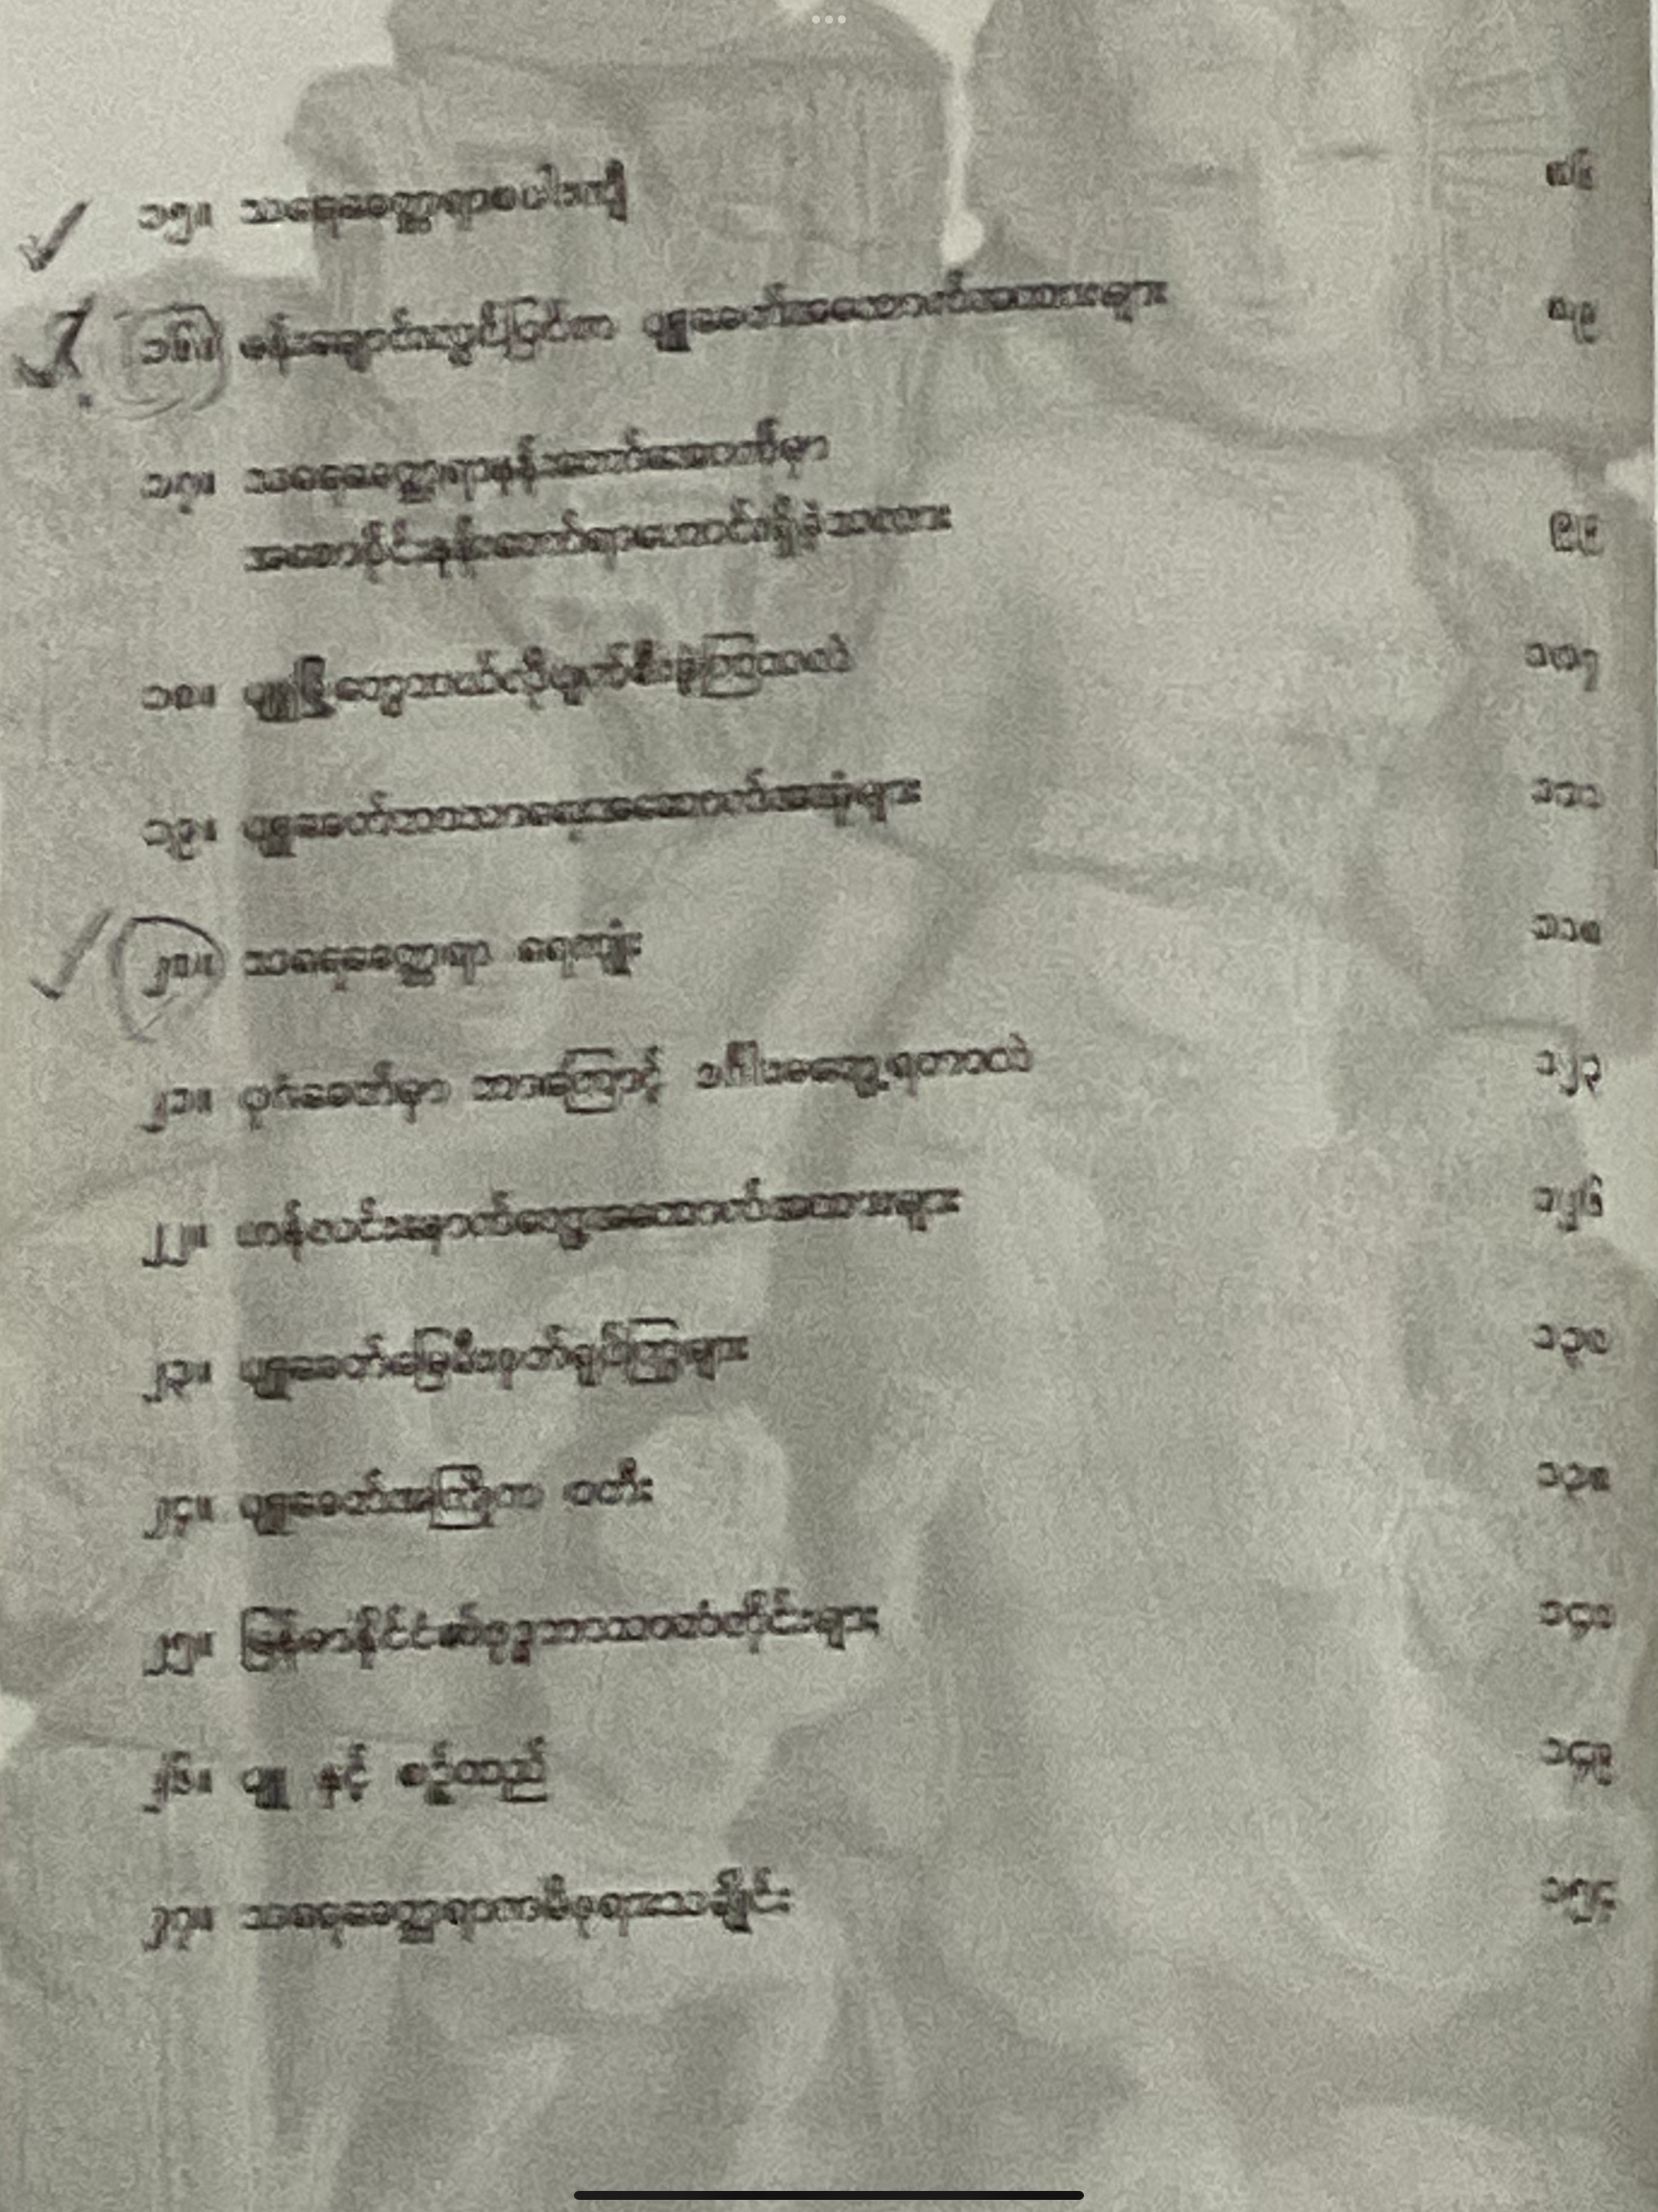 ၁၅။ သရေခေတ္တရာစပါးကျီ ၈၆
၁၆။ ခန်းချောင်းကွင်းပြင်က ပျူခေတ်အထောက်အထားများ ၈၉
၁၇။ သရေခေတ္တရာနန်းတော်အောက်မှာ
အစောပိုင်းနန်းတော်ရာဟောင်းရှိခဲ့သလား
၁၈။ ပျူမြို့တွေဘယ်လိုပျက်စီးခဲ့ကြသလဲ ၁၀၇
၁၉။ ပျူခေတ်ဘာသာရေးအဆောက်အအုံများ ၁၁၁
၂၀။ သရေခေတ္တရာ ရေကျုံး ၁၁၈
၂၁။ ပုဂံခေတ်မှာ ဘာကြောင့် ဒင်္ဂါးမတွေ့ရတာလဲ ၁၂၃
၂၂။ ဟန်လင်းနောက်တွေ့အထောက်အထားများ ၁၂၆
၂၃။ ပျူခေတ်မြေမီးဖုတ်ရုပ်ကြွများ ၁၃၀
၂၄။ ပျူခေတ်အကြိုက ပုတီး
၂၅။ မြန်မာနိုင်ငံ၏ဗုဒ္ဓဘာသာတံတိုင်းများ
၂၆။ ပျူ နှင့် စဉ့်ထည် ၁၄၉
၂၇။ သရေခေတ္တရာကမိဖုရားသင်္ချိုင်း ၁၅၄